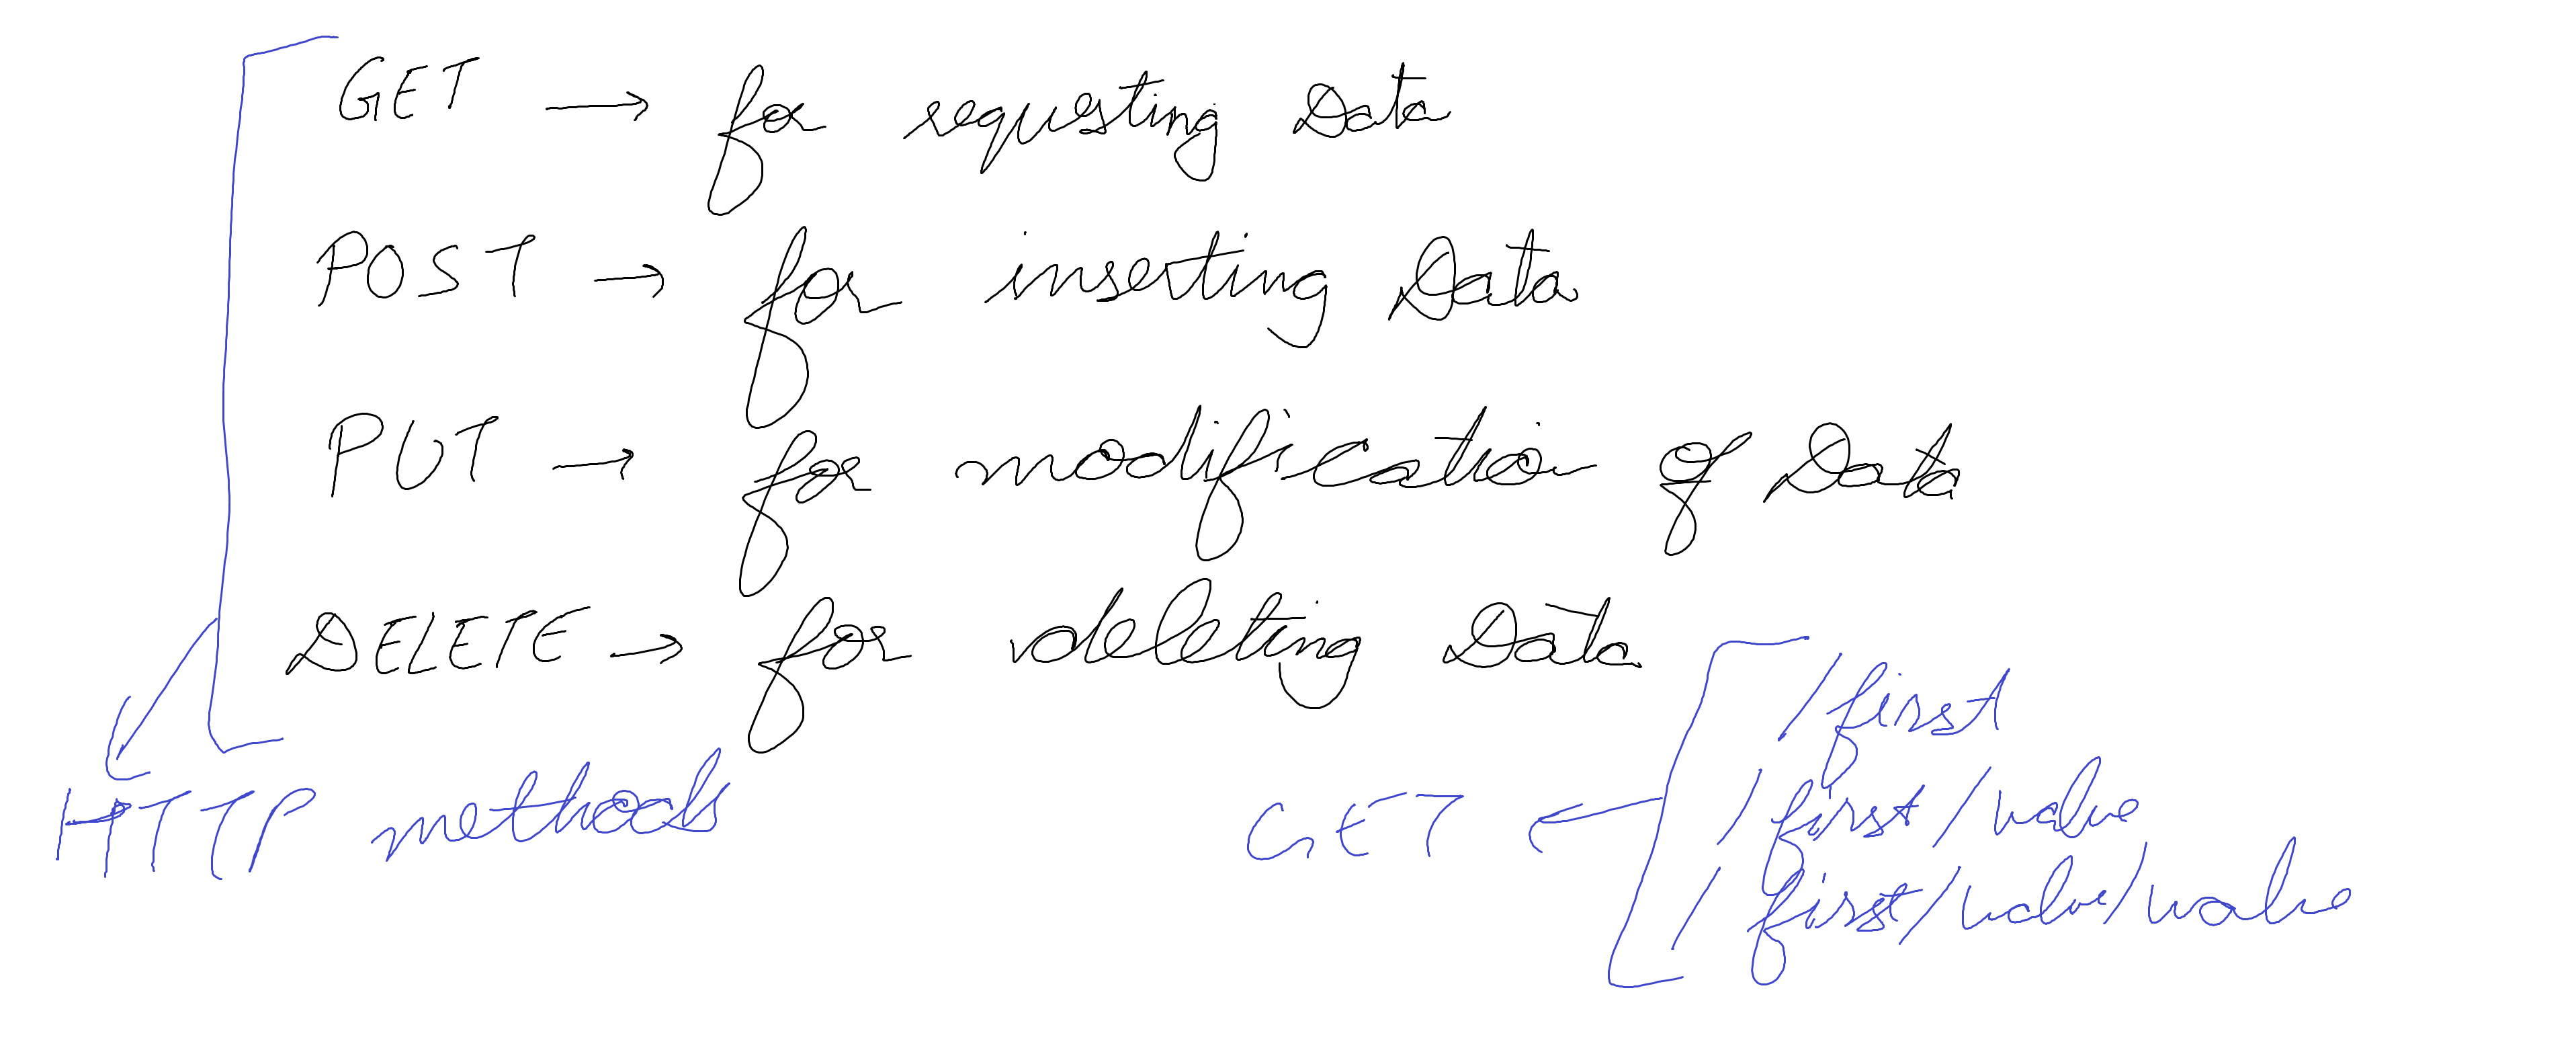 GET → for requesting Data
POST → for inserting Data
PUT → for modification of Data
DELETE → for deleting Data
HTTP methods
GET ←
/first
/first/value
/first/value/value